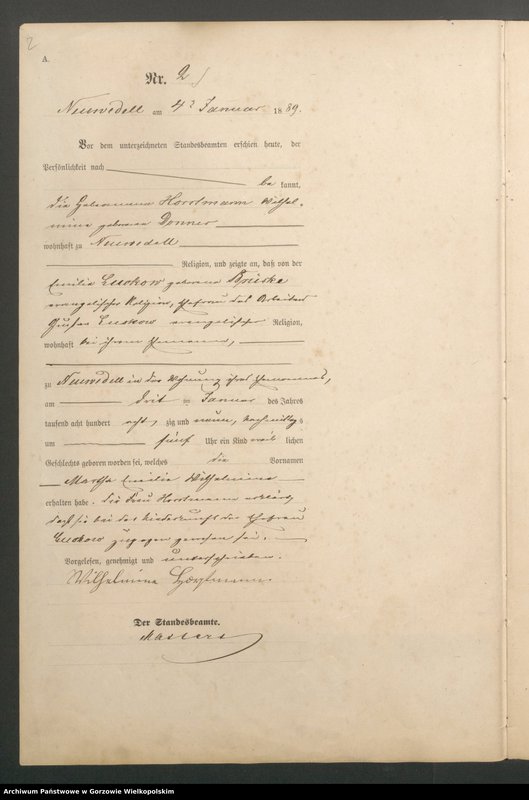 2
A.
Nr. 2
Neuwedell am 4ⁿ Januar 1889.
Vor dem unterzeichneten Standesbeamten erschien heute, der
Persönlichkeit nach
be kannt,
die Hebamme Horstmann Wilhel-
mine geborene Donner
wohnhaft zu Neuwedell
Religion, und zeigte an, daß von der
Emilie Luckow geborene Brüske
evangelischer Religion, Ehefrau des Arbeiters
Gustav Luckow evangelischer Religion,
wohnhaft bei ihrem Ehemanne,
zu Neuwedell in der Wohnung ihres Ehemannes,
am drit ten Januar des Jahres
tausend acht hundert acht, zig und neun, Nachmittag s
um fünf Uhr ein Kind weib lichen
Geschlechts geboren worden sei, welches die Vornamen
Martha Emilie Wilhelmine
erhalten habe. Die Frau Horstmann erklärte
daß sie bei der Niederkunft der Ehefrau
Luckow zugegen gewesen sei.
Vorgelesen, genehmigt und unterschrieben.
Wilhelmine Horstmann
Der Standesbeamte.
Archiwum Państwowe w Gorzowie Wielkopolskim